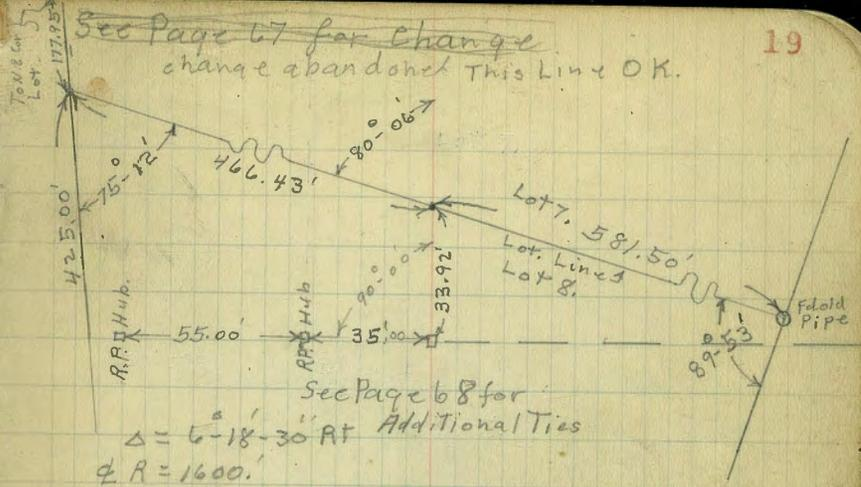 See Page 67 for Change
19
change abandoned This Line OK.
To N.E Cor 5.
Lot.
177.95'
80°-06'
75°-12'
466.43'
425.00'
Lot 7. 581.50'
Lot. Lines
Lot 8.
90°-00'
33.92'
R.P. Hub
55.00'
R.P. Hub
35.00'
Pipe
89°-53'
See Page 68 for
Additional Ties
Δ = 6°-18'-30" Rt
₵ R = 1600.'